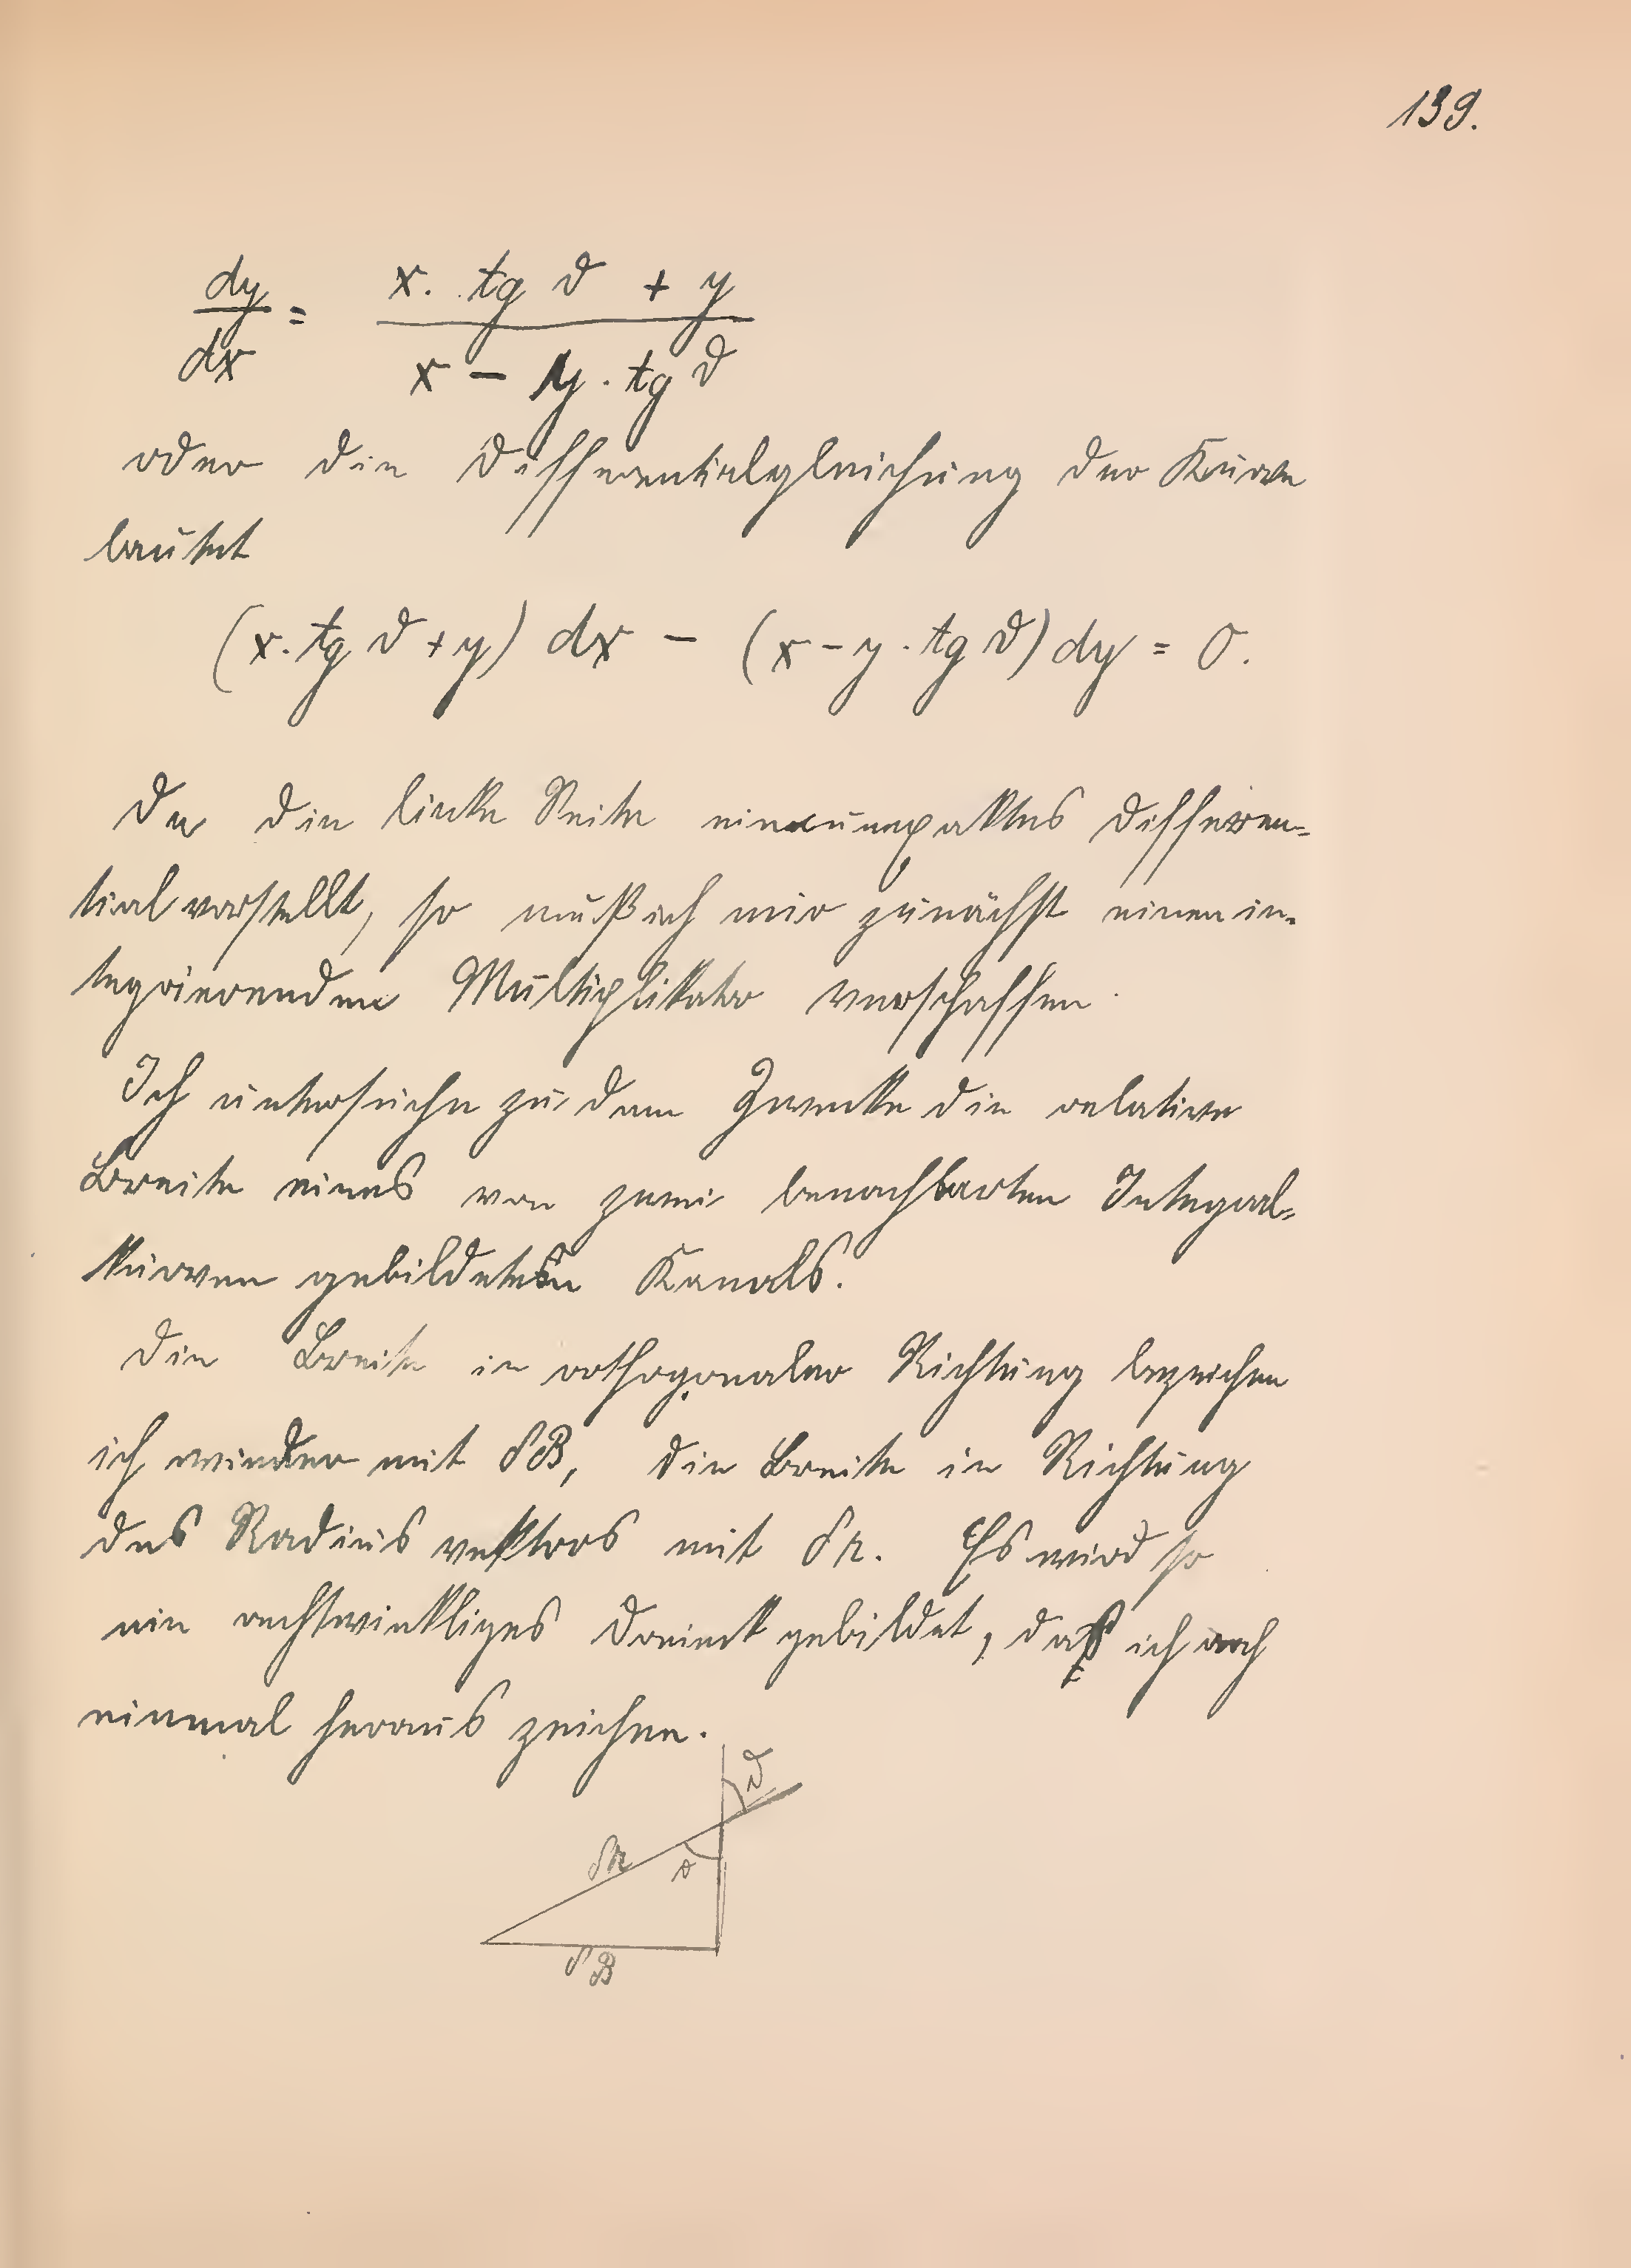 139.
dy/dx = (x. tg ϑ + y)/(x – y . tg ϑ)
oder die Differentialgleichung der Kurve
lautet
(x. tg ϑ + y) dx – (x – y . tg ϑ) dy = 0.
Da die linke Seite ein unexaktes Differen=
tial vorstellt, so muß ich mir zunächst einen in=
tegrierenden Multiplikator verschaffen.
Ich untersuche zu dem Zwecke die relative
Breite eines von zwei benachbarten Integral=
kurven gebildeten Kanals.
Die Breite in orthogonaler Richtung bezeichen
ich wieder mit δB, die Breite in Richtung
des Radius vektors mit δr. Es wird so
ein rechtwinkliges Dreieck gebildet, daß ich noch
einmal heraus zeichen.
ϑ
δr
ϑ
δB